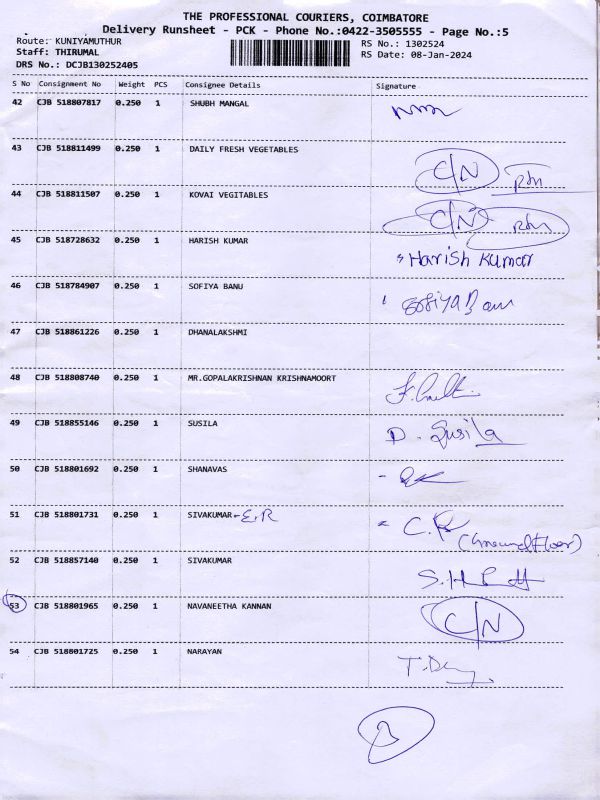 THE PROFESSIONAL COURIERS, COIMBATORE
Delivery Runsheet - PCK - Phone No.:0422-3505555 - Page No.:5
Route: KUNIYAMUTHUR RS No.: 1302524
Staff: THIRUMAL RS Date: 08-Jan-2024
DRS No.: DCJB130252405
S No Consignment No Weight PCS Consignee Details Signature
42 CJB 518807817 0.250 1 SHUBH MANGAL
43 CJB 518811499 0.250 1 DAILY FRESH VEGETABLES C/N
44 CJB 518811507 0.250 1 KOVAI VEGITABLES C/N
45 CJB 518728632 0.250 1 HARISH KUMAR Harish Kumar
46 CJB 518784907 0.250 1 SOFIYA BANU
47 CJB 518861226 0.250 1 DHANALAKSHMI
48 CJB 518808740 0.250 1 MR.GOPALAKRISHNAN KRISHNAMOORT
49 CJB 518855146 0.250 1 SUSILA D. Susila
50 CJB 518801692 0.250 1 SHANAVAS
51 CJB 518801731 0.250 1 SIVAKUMAR - E.R (Ground Floor)
52 CJB 518857140 0.250 1 SIVAKUMAR
53 CJB 518801965 0.250 1 NAVANEETHA KANNAN C/N
54 CJB 518801725 0.250 1 NARAYAN